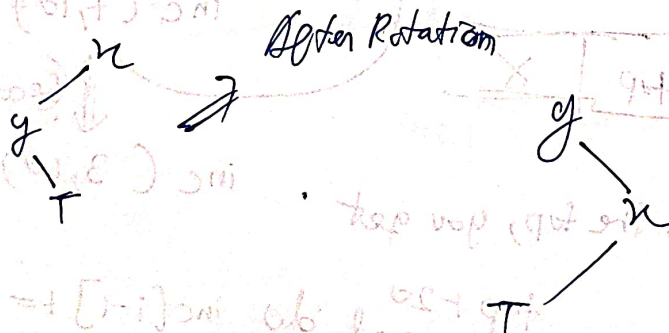 After Rotation
x
y
T
y
x
T